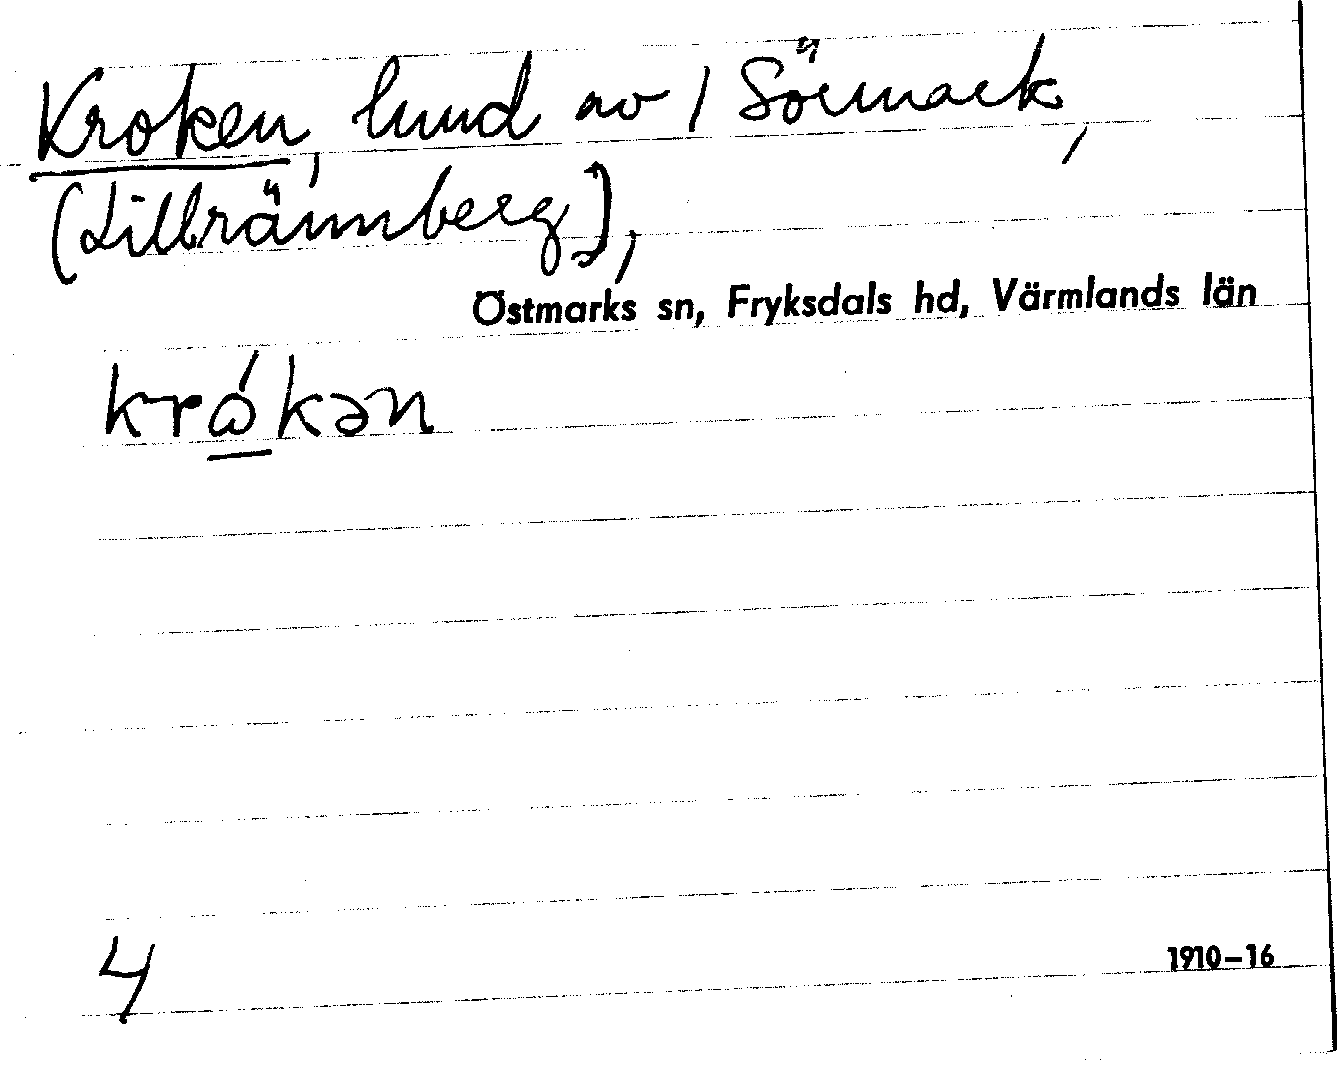 Kroken, lund av 1 Sörmark,
(Lillrännberg),
Östmarks sn, Fryksdals hd, Värmlands län
krώ̲kən
4
1910–16